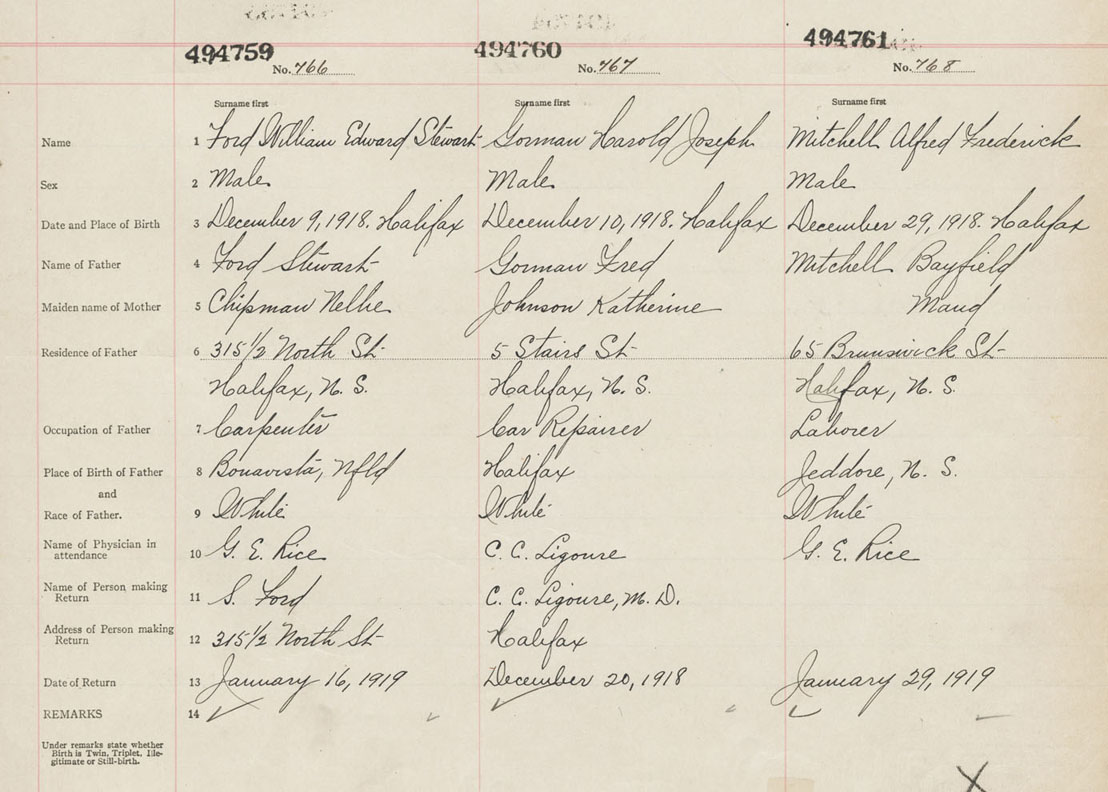 494759 494760 494761
No. 766 No. 767 No. 768
Surname first Surname first Surname first
Name 1 Ford William Edward Stewart Gorman Harold Joseph Mitchell Alfred Frederick
Sex 2 Male Male Male
Date and Place of Birth 3 December 9, 1918. Halifax December 10, 1918. Halifax December 29, 1918. Halifax
Name of Father 4 Ford Stewart Gorman Fred Mitchell Bayfield
Maiden name of Mother 5 Chipman Nellie Johnson Katherine Maud
Residence of Father 6 315 1/2 North St 5 Stairs St 65 Brunswick St
Halifax, N. S. Halifax, N. S. Halifax, N. S.
Occupation of Father 7 Carpenter Car Repairer Laborer
Place of Birth of Father 8 Bonavista, Nfld Halifax Jeddore, N. S.
and
Race of Father. 9 White White White
Name of Physician in
attendance 10 G. E. Rice C. C. Ligoure G. E. Rice
Name of Person making
Return 11 S. Ford C. C. Ligoure, M. D.
Address of Person making
Return 12 315 1/2 North St Halifax
Date of Return 13 January 16, 1919 December 20, 1918 January 29, 1919
REMARKS 14
Under remarks state whether
Birth is Twin, Triplet, Ille-
gitimate or Still-birth.